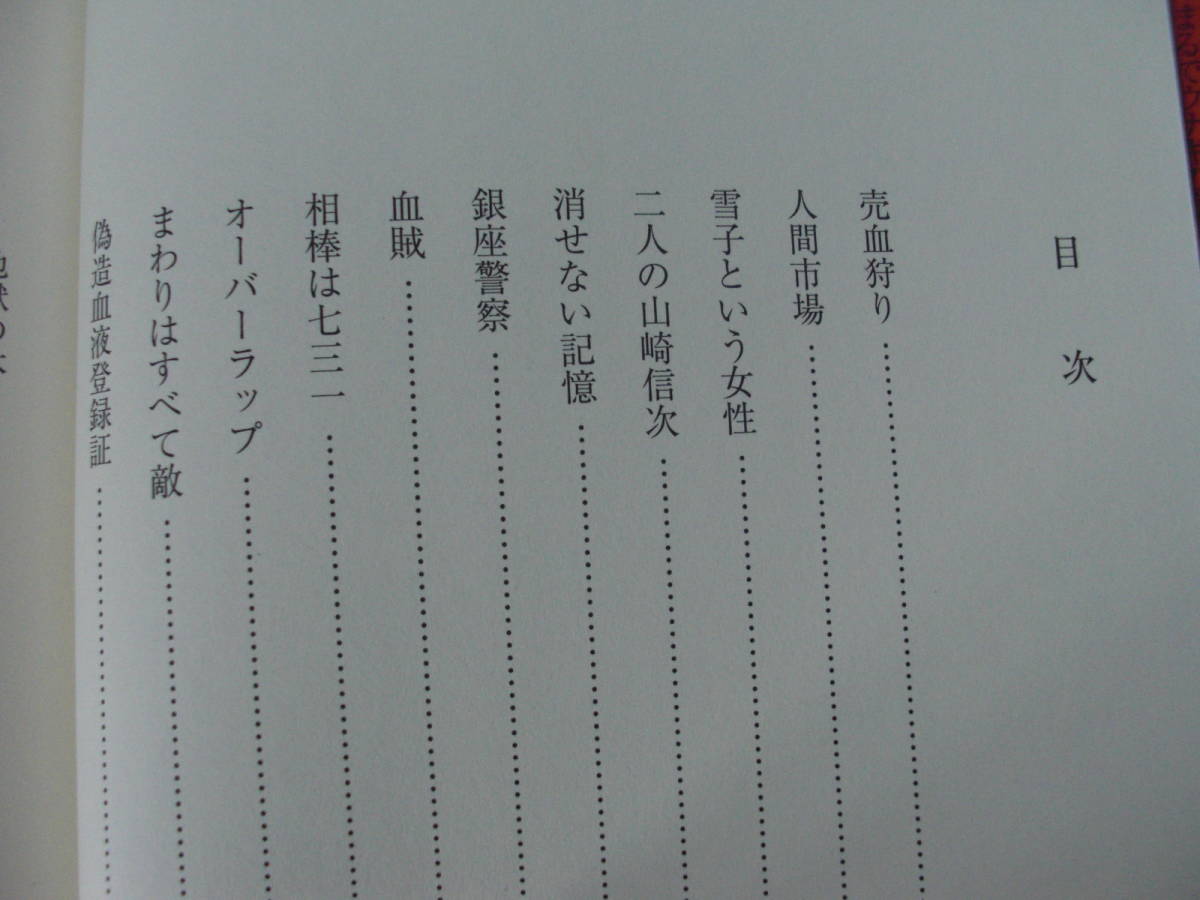 目次
売血狩り
人間市場
雪子という女性
二人の山崎信次
消せない記憶
銀座警察
血賊
相棒は七三一
オーバーラップ
まわりはすべて敵
偽造血液登録証